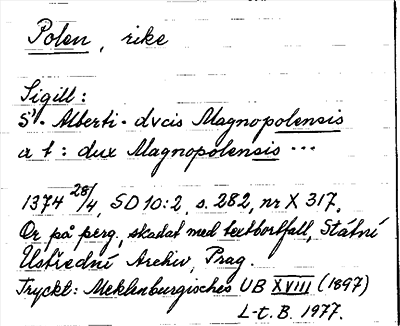 Polen, rike
Sigill:
S'· Alberti · dvcis Magnopolensis
a t : dux Magnopolensis ...
1374 28/4, SD 10:2, s. 282, nr X 317.
Or på perg., skadat med textbortfall, Státní
Ústřední Archiv, Prag.
Tryckt: Meklenburgisches UB XVIII (1897)
L-t. B. 1977.